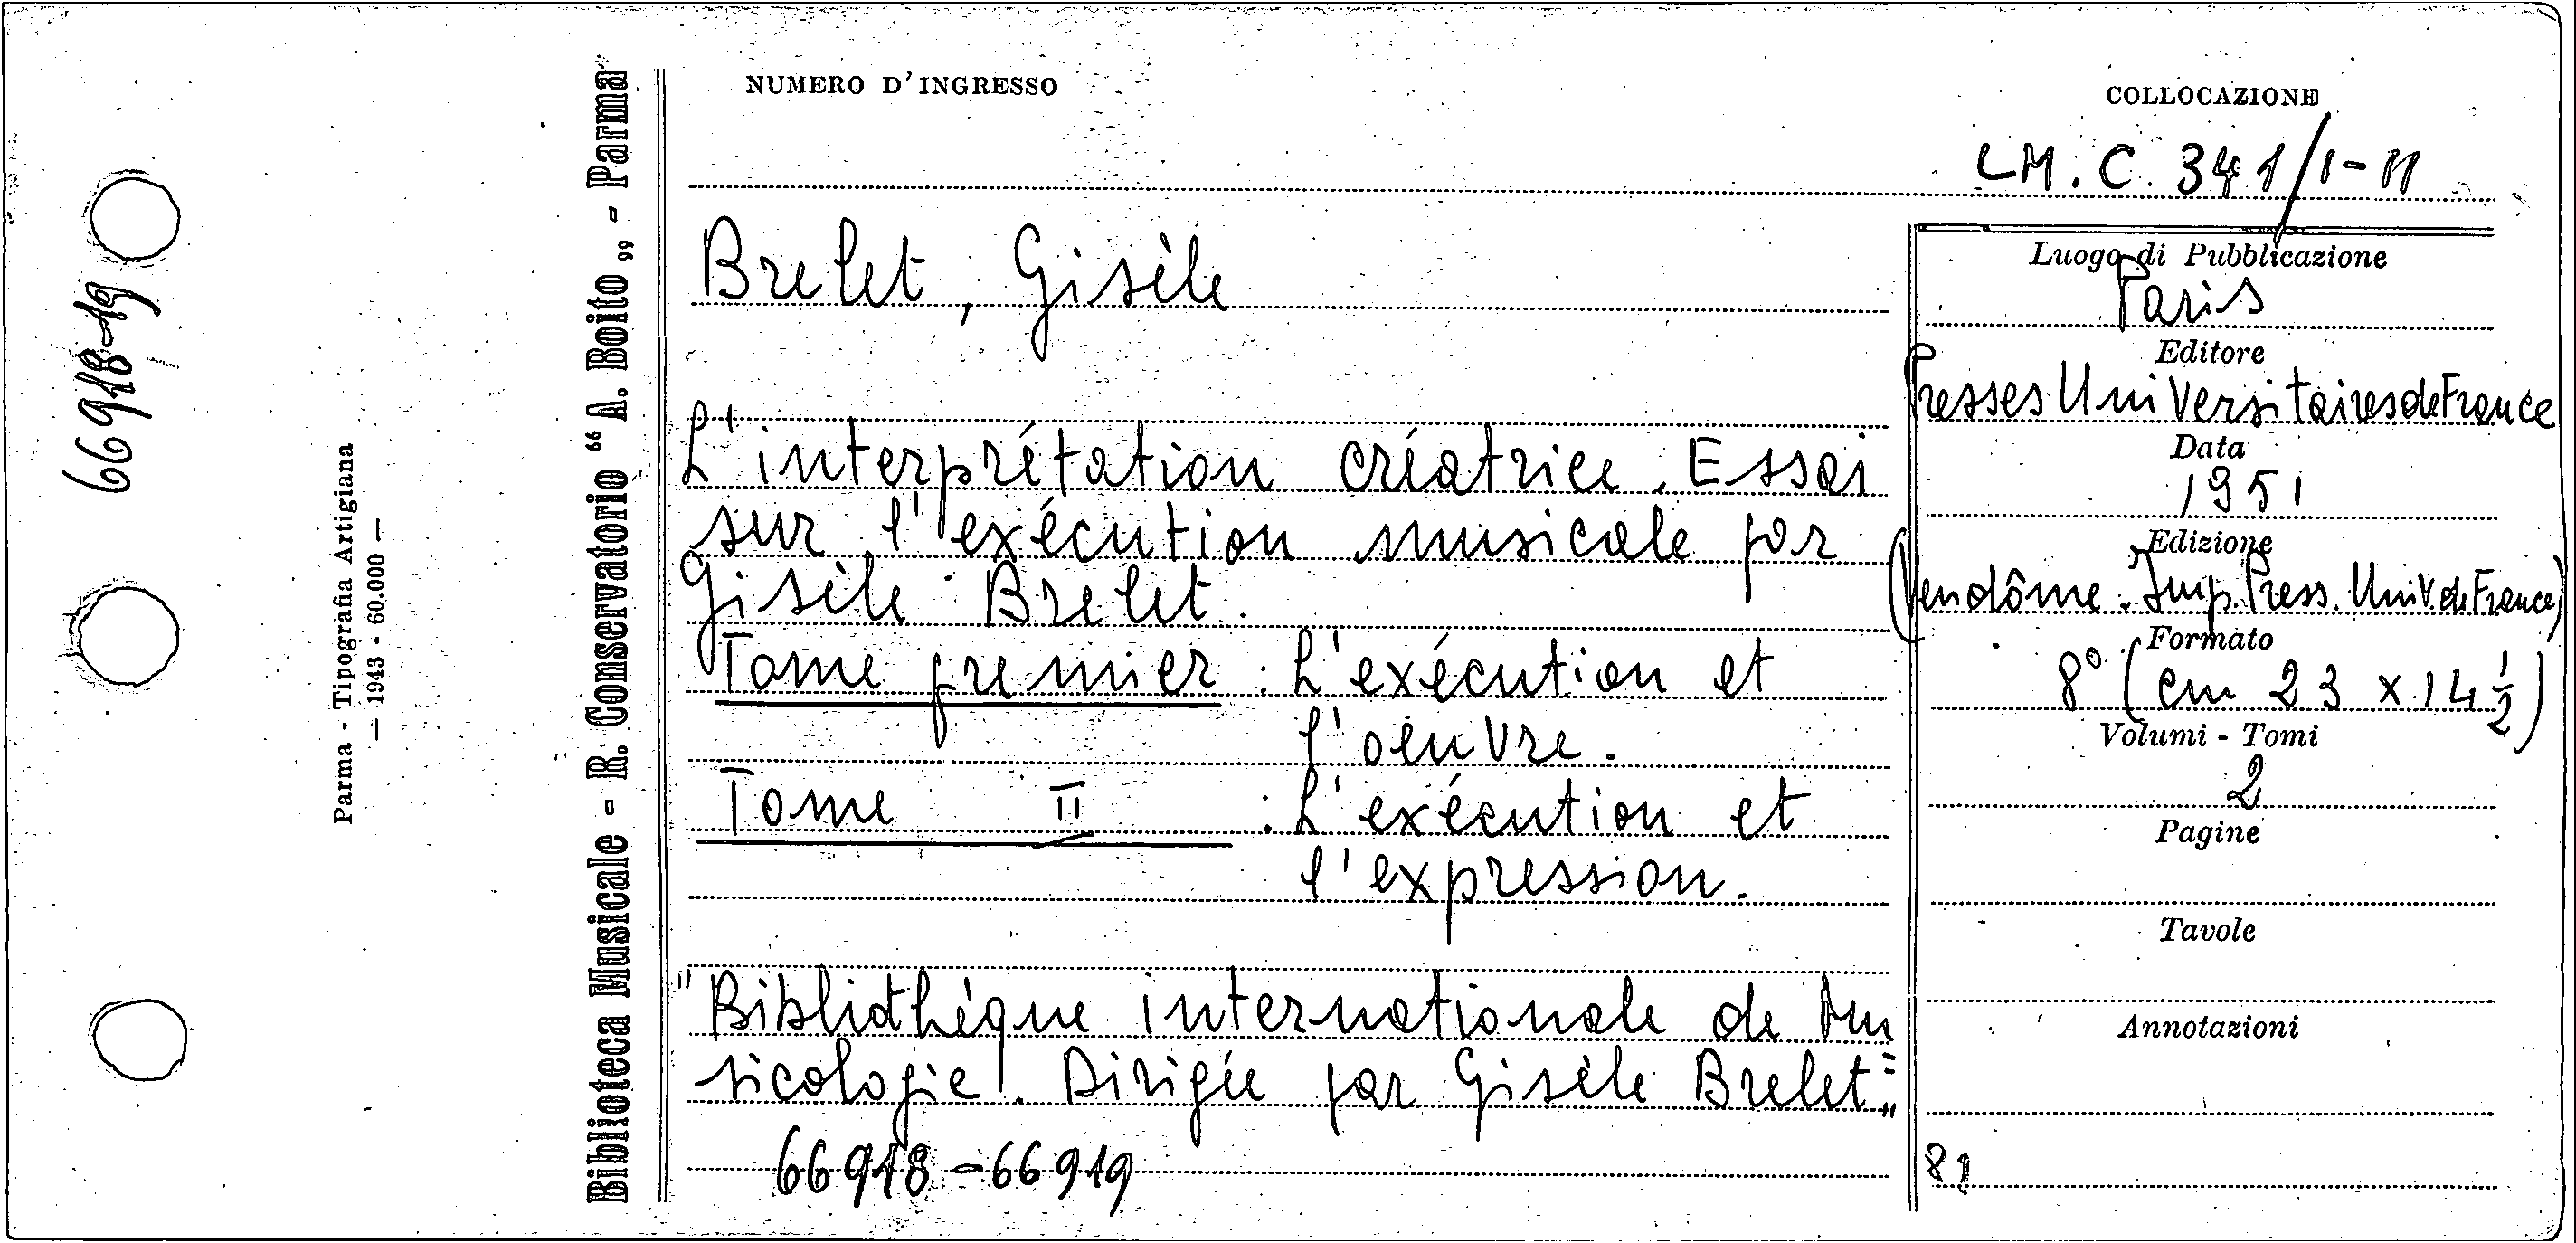 66918-19
Parma - Tipografia Artigiana
— 1943 - 60.000 —
Biblioteca Musicale - R. Conservatorio “A. Boito„ - Parma
NUMERO D'INGRESSO
COLLOCAZIONE
LM. C. 341/I-II
Brelet, Gisèle
L'interprétation créatrice. Essai
sur l'exécution musicale par
Gisèle Brelet.
Tome premier : L'exécution et
l'oeuvre.
Tome II : L'exécution et
l'expression.
"Bibliothèque internationale de Mu
sicologie. Dirigée par Gisèle Brelet"
66918-66919
Luogo di Pubblicazione
Paris
Editore
Presses Universitaires de France
Data
1951
Edizione
(Vendôme. Imp. Press. Univ. de France)
Formato
8° (cm 23 x 14 ½)
Volumi - Tomi
2
Pagine
Tavole
Annotazioni
81